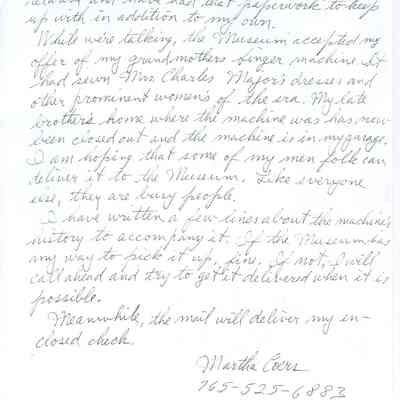 and have had that paperwork to keep
up with in addition to my own.
While we're talking, the Museum accepted my
offer of my grandmothers Singer machine. It
had sewn Mrs. Charles Major's dresses and
other prominent women's of the era. My late
brother's home where the machine was has now
been closed out and the machine is in my garage.
I am hoping that some of my men folk can
deliver it to the Museum. Like everyone
else, they are busy people.
I have written a few lines about the machine's
history to accompany it. If the Museum has
any way to pick it up, fine. If not, I will
call ahead and try to get it delivered when it is
possible.
Meanwhile, the mail will deliver my en-
closed check.
Martha Coers
765-525-6883